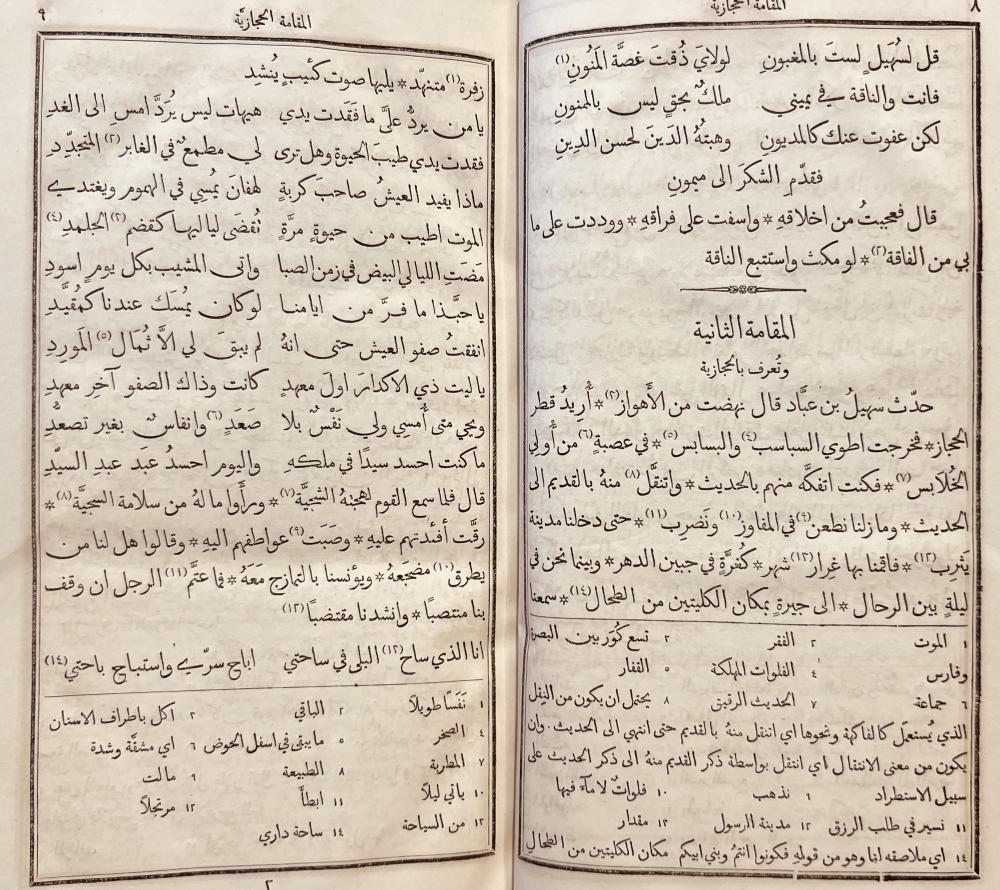 ٨
المقامة الحجازية
قل لسُهَيلٍ لستَ بالمغبونِ لولايَ ذُقتَ غصَّة المَنونِ(١)
فانت والناقة في يميني ملكٌ بحقٍ ليس بالممنونِ
لكن عفوت عنك كالمديونِ وهبتُهُ الدَينَ لحسن الدِينِ
فقدّمِ الشكرَ الى ميمونِ
قال فعجبتُ من اخلاقهِ * واسفت على فراقهِ * ووددت على ما
بي من الفاقة(٢) * لو مكث واستتبع الناقة
المقامة الثانية
وتُعرف بالحجازية
حدّث سهيلُ بن عبَّاد قال نهضت من الأَهواز(٣) * أُريدُ قطر
الحجاز * فخرجت اطوي السباسب(٤) والبسابس(٥) * في عصبةٍ(٦) من أُولي
الخُلابس(٧) * فكنت اتفكَّه منهم بالحديث * واتنقَّل(٨) منهُ بالقديم الى
الحديث * وما زلنا نطعن(٩) في المفاوز(١٠) ونَضرِب(١١) * حتى دخلنا مدينة
يَثرِب(١٢) * فاقمنا بها غِرار(١٣) شهر * كغُرَّةٍ في جبين الدهر * وبينما نحن في
ليلةٍ بين الرحال * الى جيرةٍ بمكان الكليتين من الطحال(١٤) * سمعنا
١ الموت ٢ الفقر ٣ تسع كُوَر بين البصرة
وفارس ٤ الفلوات المهلكة ٥ القفار
٦ جماعة ٧ الحديث الرقيق ٨ يحتمل ان يكون من النقِل
الذي يُستعمَل كالفاكهة ونحوها اي اتنقل منهُ بالقديم حتى انتهي الى الحديث. وان
يكون من معنى الانتقال اي انتقل بواسطة ذكر القديم منهُ الى ذكر الحديث على
سبيل الاستطراد ٩ نذهب ١٠ فلوات لا ماءَ فيها
١١ نسير في طلب الرزق ١٢ مدينة الرسول ١٣ مقدار
١٤ اي ملاصقه لنا وهو من قولهِ فكونوا انتمُ وبني ابيكم مكان الكليتين من الطحال
المقامة الحجازيَّة
٩
زفرة(١) متنهّد * يليها صوت كئيبٍ يُنشِد
يا من يردُّ عليَّ ما فَقَدت يدي هيهات ليس يُرَدُّ امسِ الى الغدِ
فقدت يدي طيبَ الحيٰوة وهل ترى لي مطمعٌ في الغابر(٢) المتجدِّدِ
ماذا يفيد العيشُ صاحبَ كربةٍ لهفانَ يُمسِي في الهموم ويغتدي
الموت اطيب من حيٰوةٍ مرَّةٍ تُقضَى لياليها كقضم(٣) الجلمدِ(٤)
مَضَتِ الليالي البيض في زمن الصبا واتى المشيب بكل يومٍ اسودِ
يا حبَّذا ما فرَّ من ايامنا لو كان يُمسَك عندنا كمُقيَّدِ
انفقتُ صفو العيش حتى انهُ لم يبقَ لي الاَّ ثُمَال(٥) المَورِدِ
يا ليت ذي الاكدارَ اولَ معهدٍ كانت وذاك الصفو آخرَ معهدِ
ويحي متى أُمسِي ولي نَفْسٌ بلا صَعَدٍ(٦) وانفاسٌ بغير تصعُّدِ
ما كنت احسد سيدًا في ملكهِ واليوم احسدُ عبدَ عبدِ السيّدِ
قال فلما سمع القوم لهجتهُ الشجيَّة(٧) * ورأَوا ما لهُ من سلامة السجيَّة(٨) *
رقَّت أَفئدتهم عليهِ * وصَبَت(٩) عواطفهم اليهِ * وقالوا هل لنا من
يطرق(١٠) مضجَعَهُ * ويؤنسنا بالتمازج مَعَهُ * فما عتَّم(١١) الرجل ان وقف
بنا منتصبًا * وانشدنا مقتضبًا(١٢)
انا الذي ساح(١٣) البلى في ساحتي اباح سرّي واستباح باحتي(١٤)
١ نَفَسًا طويلاً ٢ الباقي ٣ اكل باطراف الاسنان
٤ الصخر ٥ ما يبقى في اسفل الحوض ٦ اي مشقَّة وشدة
٧ المطربة ٨ الطبيعة ٩ مالت
١٠ ياتي ليلاً ١١ ابطأَ ١٢ مرتجلاً
١٣ من السياحة ١٤ ساحة داري
٢